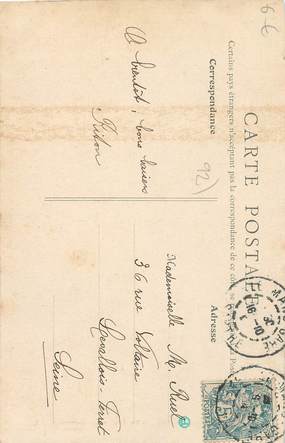 CARTE POSTALE
Certains pays étrangers n'acceptant pas la correspondance de ce côté, se
Correspondance
Adresse
A bientôt, bons baisers
Riton
Mademoiselle M. Ruel
36 rue Voltaire
Levallois-Perret
Seine
92
6€